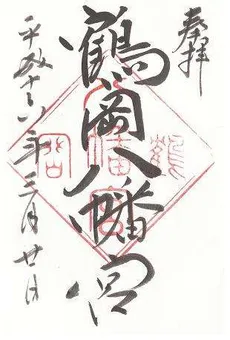 奉拝
鶴岡八幡宮
平成十八年三月廿日